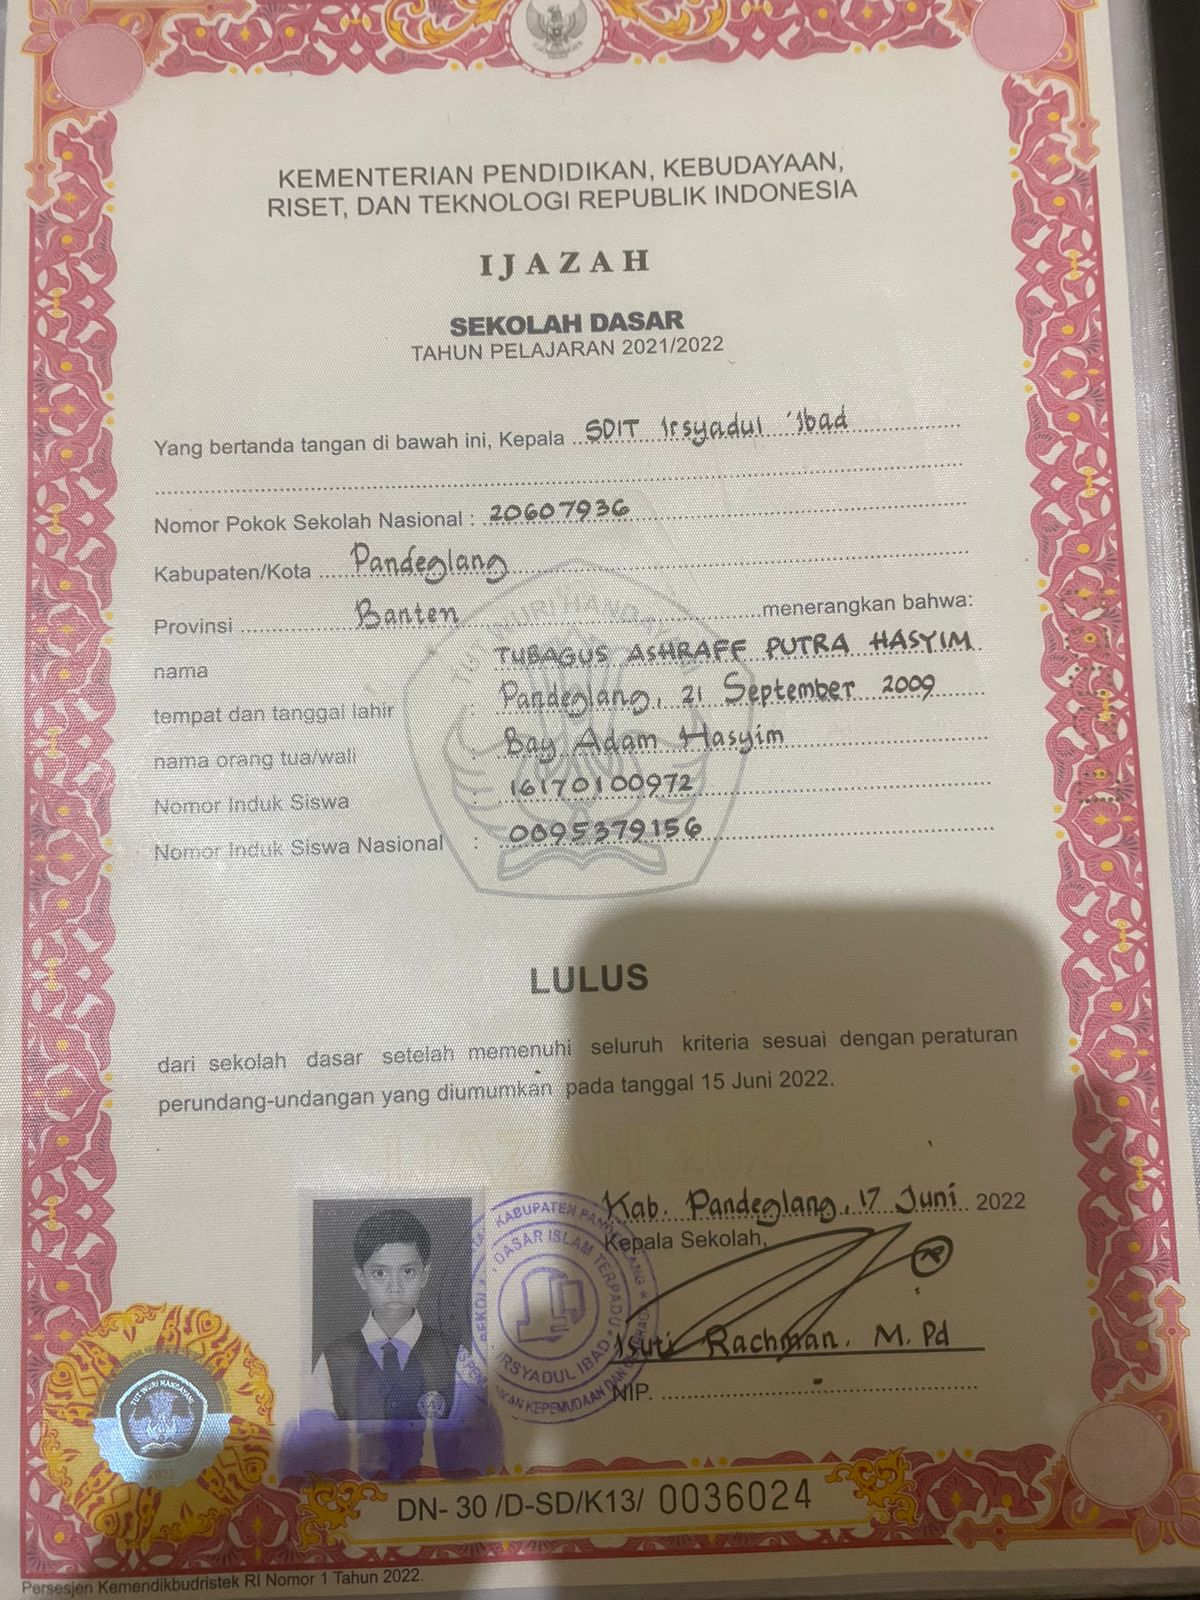 KEMENTERIAN PENDIDIKAN, KEBUDAYAAN,
RISET, DAN TEKNOLOGI REPUBLIK INDONESIA
IJAZAH
SEKOLAH DASAR
TAHUN PELAJARAN 2021/2022
Yang bertanda tangan di bawah ini, Kepala SDIT Irsyadul 'Ibad
Nomor Pokok Sekolah Nasional : 20607936
Kabupaten/Kota Pandeglang
Provinsi Banten menerangkan bahwa:
nama : TUBAGUS ASHRAFF PUTRA HASYIM
tempat dan tanggal lahir : Pandeglang, 21 September 2009
nama orang tua/wali : Bay Adam Hasyim
Nomor Induk Siswa : 16170100972
Nomor Induk Siswa Nasional : 0095379156
TUT WURI HANDAYANI
LULUS
dari sekolah dasar setelah memenuhi seluruh kriteria sesuai dengan peraturan
perundang-undangan yang diumumkan pada tanggal 15 Juni 2022.
IJAZAH 2022
Kab. Pandeglang, 17 Juni 2022
Kepala Sekolah,
Rachman, M.Pd
NIP. -
KABUPATEN PANDEGLANG
DASAR ISLAM TERPADU
IRSYADUL IBAD
KEPEMUDAAN DAN
TUT WURI HANDAYANI
2022
DN- 30 /D-SD/K13/ 0036024
Persesjen Kemendikbudristek RI Nomor 1 Tahun 2022.